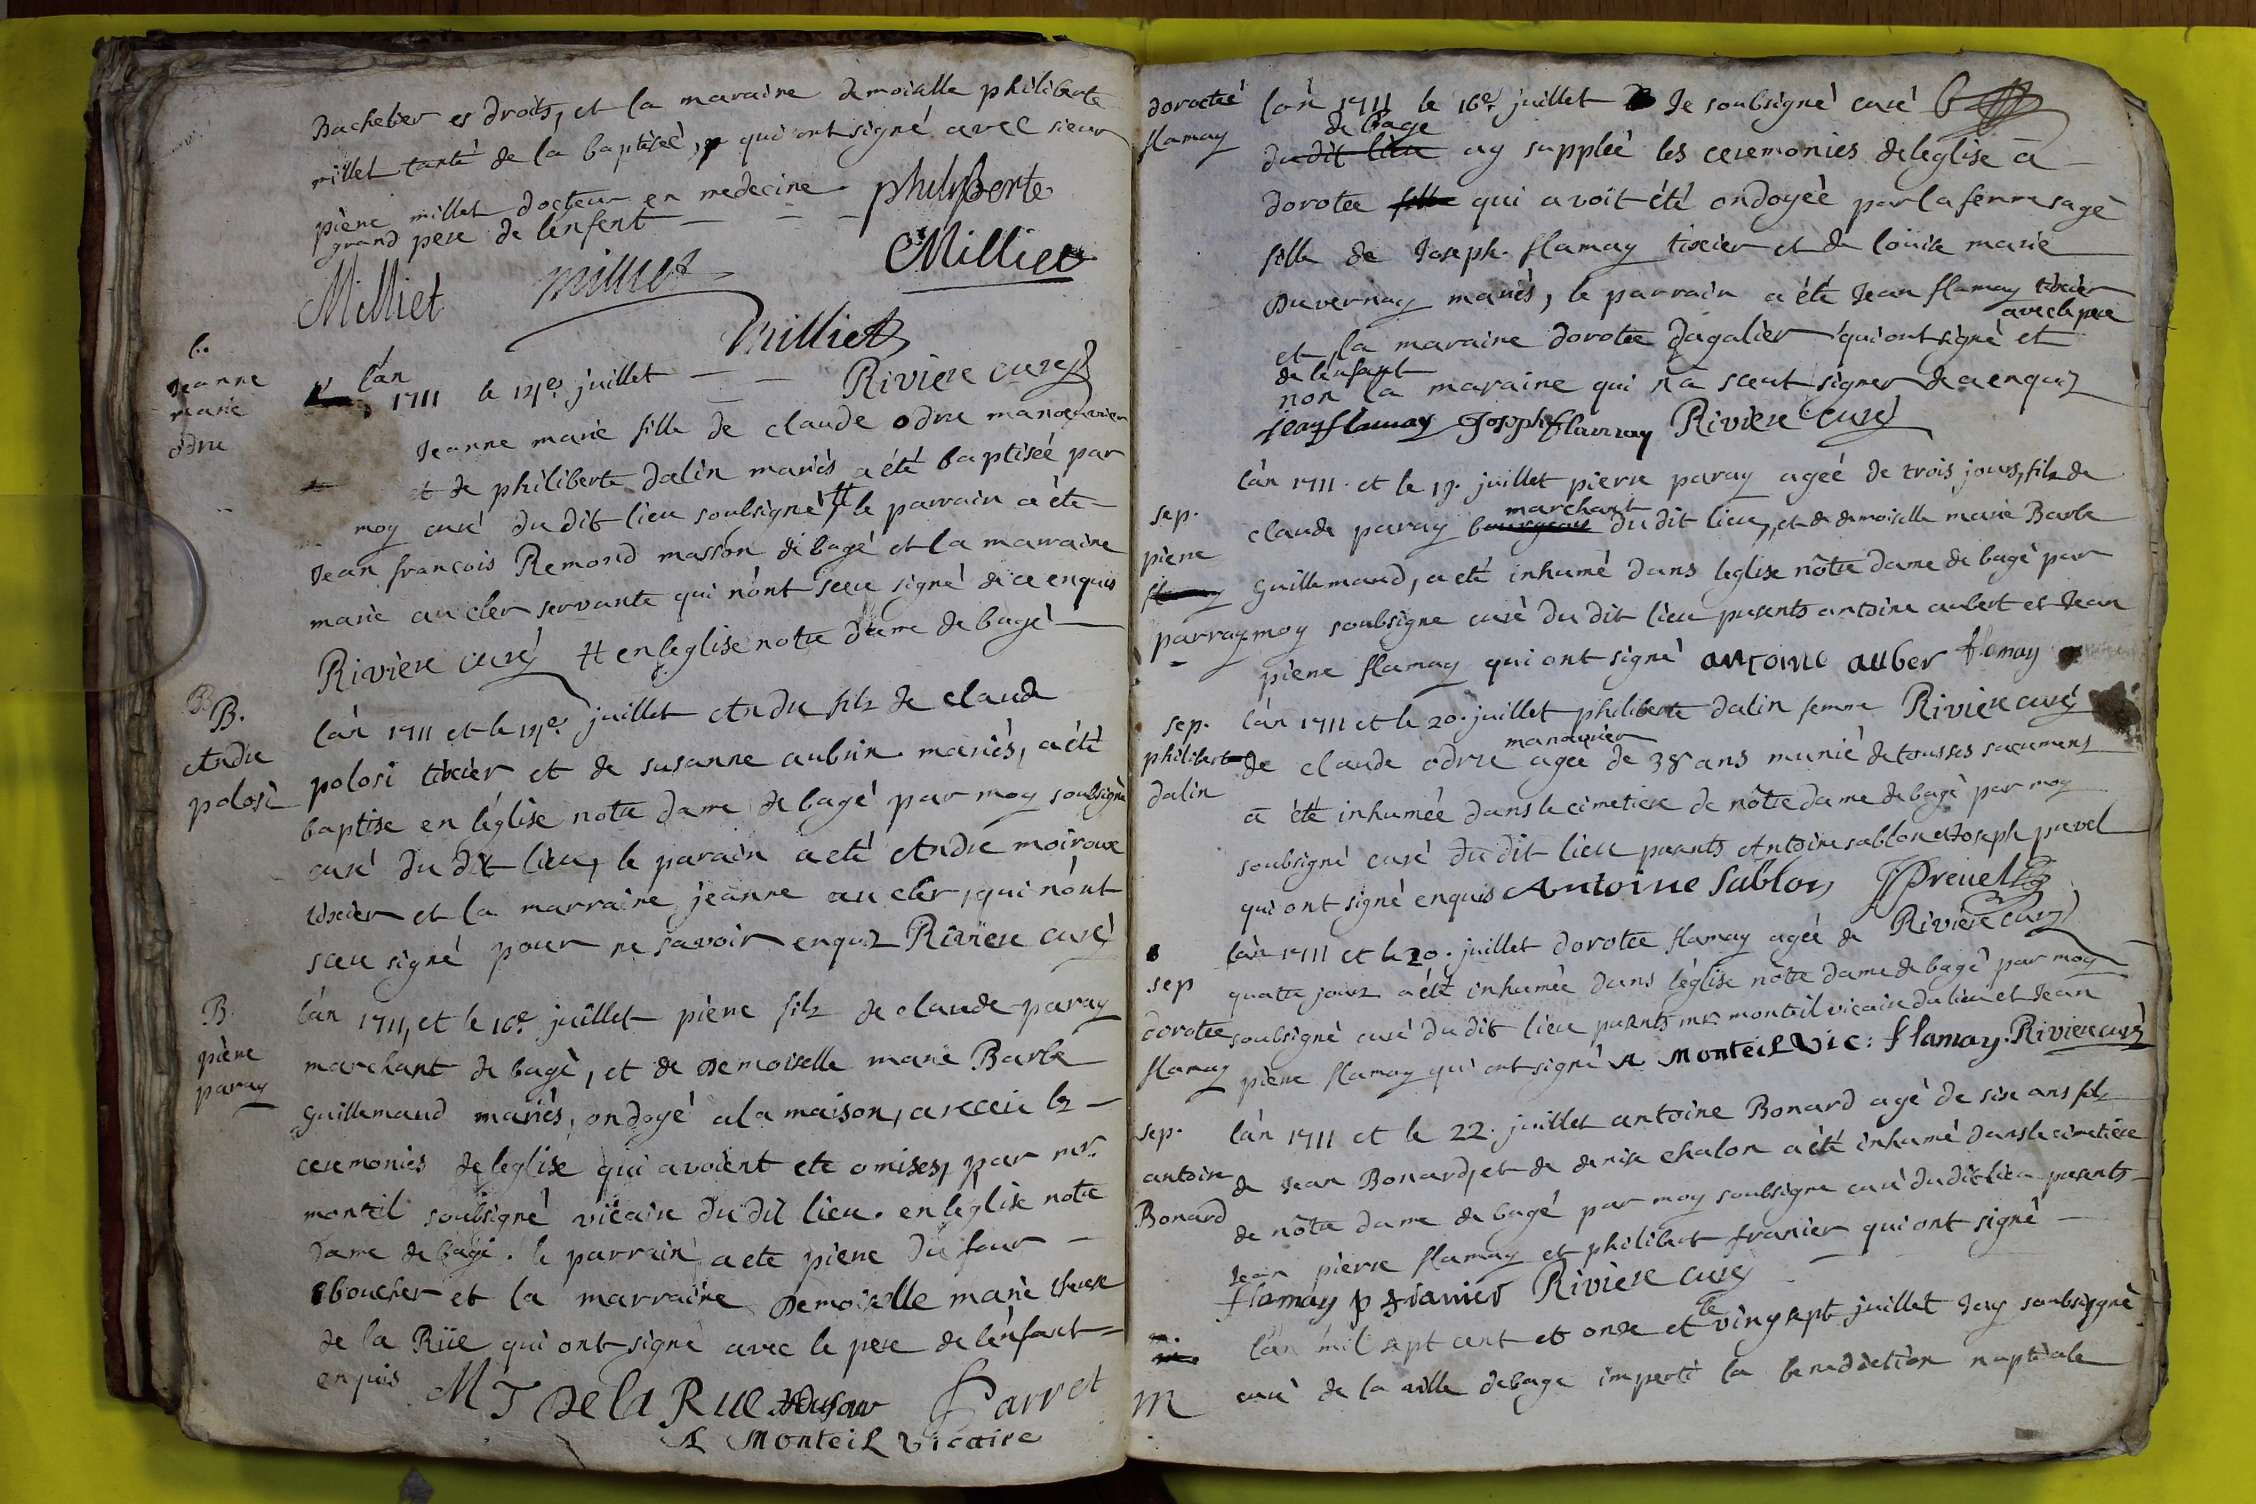 Bachelier es droits, et la maraine demoiselle philiberte
millet tante de la baptiseé, qui ont signé avec sieur
pierre millet docteur en medecine
grand pere de l'enfent
philiberte
Milliet
Milliet milliet
Milliet
B.
Jeanne
marie
odru
l'an
1711 le 14e. juillet
Riviere curé
Jeanne marie fille de claude odru manoeuvrier
et de philiberte dalin mariés a été baptiseé par
moy curé du dit lieu soubsigné # le parrain a été
Jean françois Remond masson de bagé et la marraine
marie aucler servante qui n'ont sceu signé de ce enquis
Riviere curé # en leglise notre dame de bagé
B.
Andre
polosi
l'an 1711 et le 14e. juillet Andre filz de claude
polosi tixier et de susanne aubrin mariés, a été
baptise en l'église notre dame de bagé par moy soubsigné
curé du dit lieu, le parain a eté Andre moiroux
tixier et la marraine jeanne aucler, qui n'ont
sceu signé pour ne savoir enquiz Riviere curé
B.
pierre
paray
l'an 1711, et le 16e. juillet pierre filz de claude paray
marchant de bagé, et de Demoiselle marie Barbe
Guillemaud mariés, ondoyé a la maison, a receu les
ceremonies de leglise qui avoient ete omises, par mr.
monteil soubsigné vicaire du dit lieu. en leglise notre
dame de bagé. le parrain a ete pierre du four
boucher et la marraine Demoiselle marie therese
de la Rüe qui ont signé avec le pere de l'enfant
enquis
M T De la Rue dufour Parret
A Monteil vicaire
doroteé
flamay
l'an 1711 le 16e. juillet Je soubsigné curé
de bagé
du dit lieu ay suppleé les ceremonies de leglise a
dorotee fille qui avoit été ondoyeé par la femme sage
fille de Joseph flamay tixier et de loüise marie
Duvernay mariés, le parrain a été Jean flamay tixier
avec le pere
et la maraine dorotee dagalier qui ont signé et
de l'enfant
non la maraine qui n'a sceut signer de ce enquiz
jean flamay Joseph flamay Riviere curé
sep.
pierre
flamay
parray
l'an 1711. et le 19. juillet pierre paray ageé de trois jours, filz de
marchant
claude paray bourgeois du dit lieu, et de demoiselle marie Barbe
Guillemaud, a eté inhumé dans leglise nôtre dame de bagé par
moy soubsigne curé du dit lieu presents antoine aubert et Jean
pierre flamay qui ont signé antoine auber flamay
sep.
philiberte
dalin
l'an 1711 et le 20. juillet philiberte dalin femme Riviere curé
manouvrier
de claude odru agee de 38 ans munié de tous ses sacrements
a été inhumée dans le cimetiere de nôtre dame de bagé par moy
soubsigné curé du dit lieu presents Antoine sablon et Joseph prevel
qui ont signé enquis Antoine Sablon JPrevel
sep
dorotee
flamay
l'an 1711 et le 20. juillet dorotee flamay ageé de Riviere curé
quatre jours a été inhumée dans l'église nôtre dame de bagé par moy
soubsigné curé du dit lieu presents mr. monteil vicaire du lieu et Jean
pierre flamay qui ont signé A Monteil Vic: flamay. Riviere curé
sep.
antoine
Bonard
l'an 1711 et le 22. juillet antoine Bonard agé de six ans filz
de Jean Bonard, et de denise chalon a été inhumé dans le cimetiere
de nôtre dame de bagé par moy soubsigné curé du dit lieu presents
Jean pierre flamay et philibert franier qui ont signé
flamay p franier Riviere curé
M
l'an mil sept cent et onze et le vingsept juillet Jay soubsigné
curé de la ville de bage imperti la benediction nuptiale